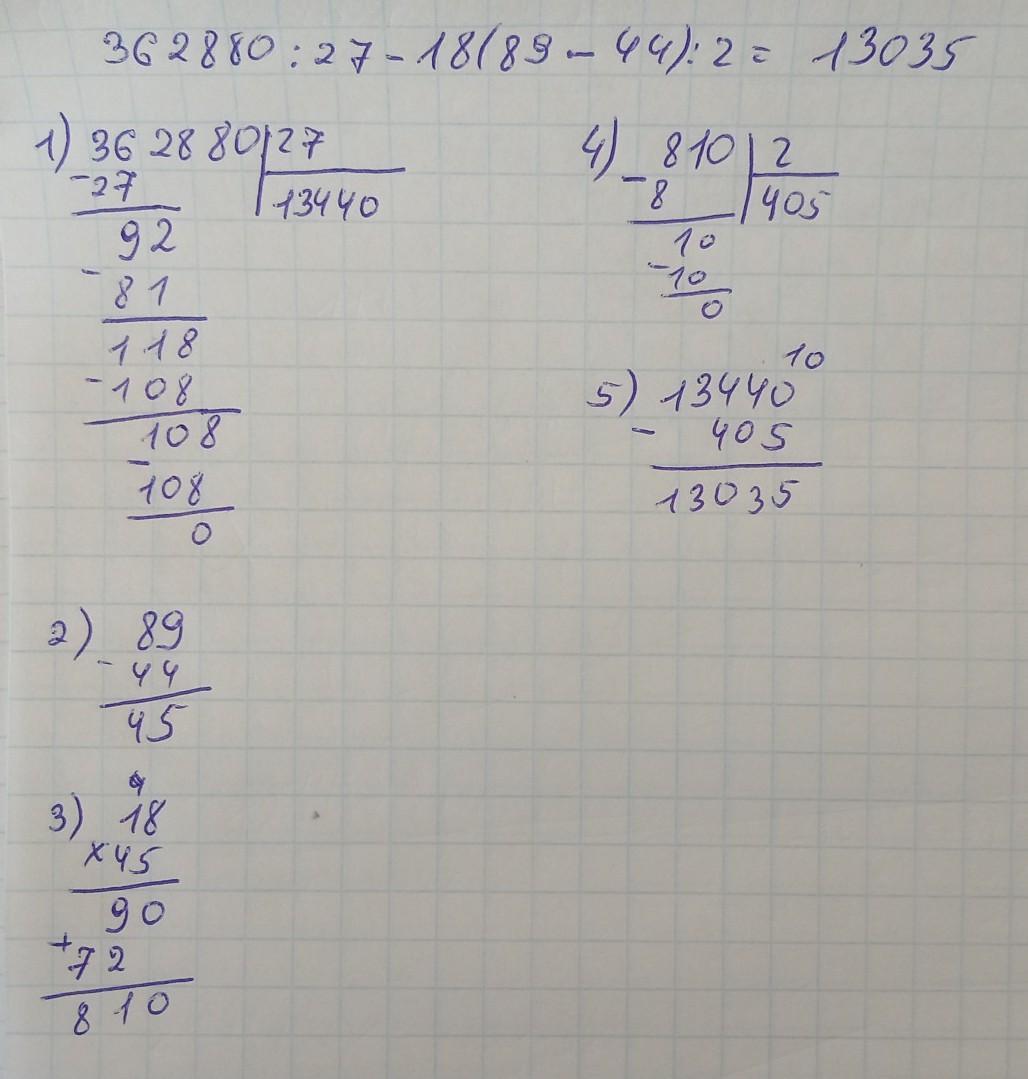 362880 : 27 - 18(89 - 44) : 2 = 13035
1) 362880 | 27
- 27
13440
92
- 81
118
- 108
108
- 108
0
2) 89
- 44
45
4
3) 18
× 45
90
+ 72
810
4) 810 | 2
- 8
405
10
- 10
0
10
5) 13440
- 405
13035